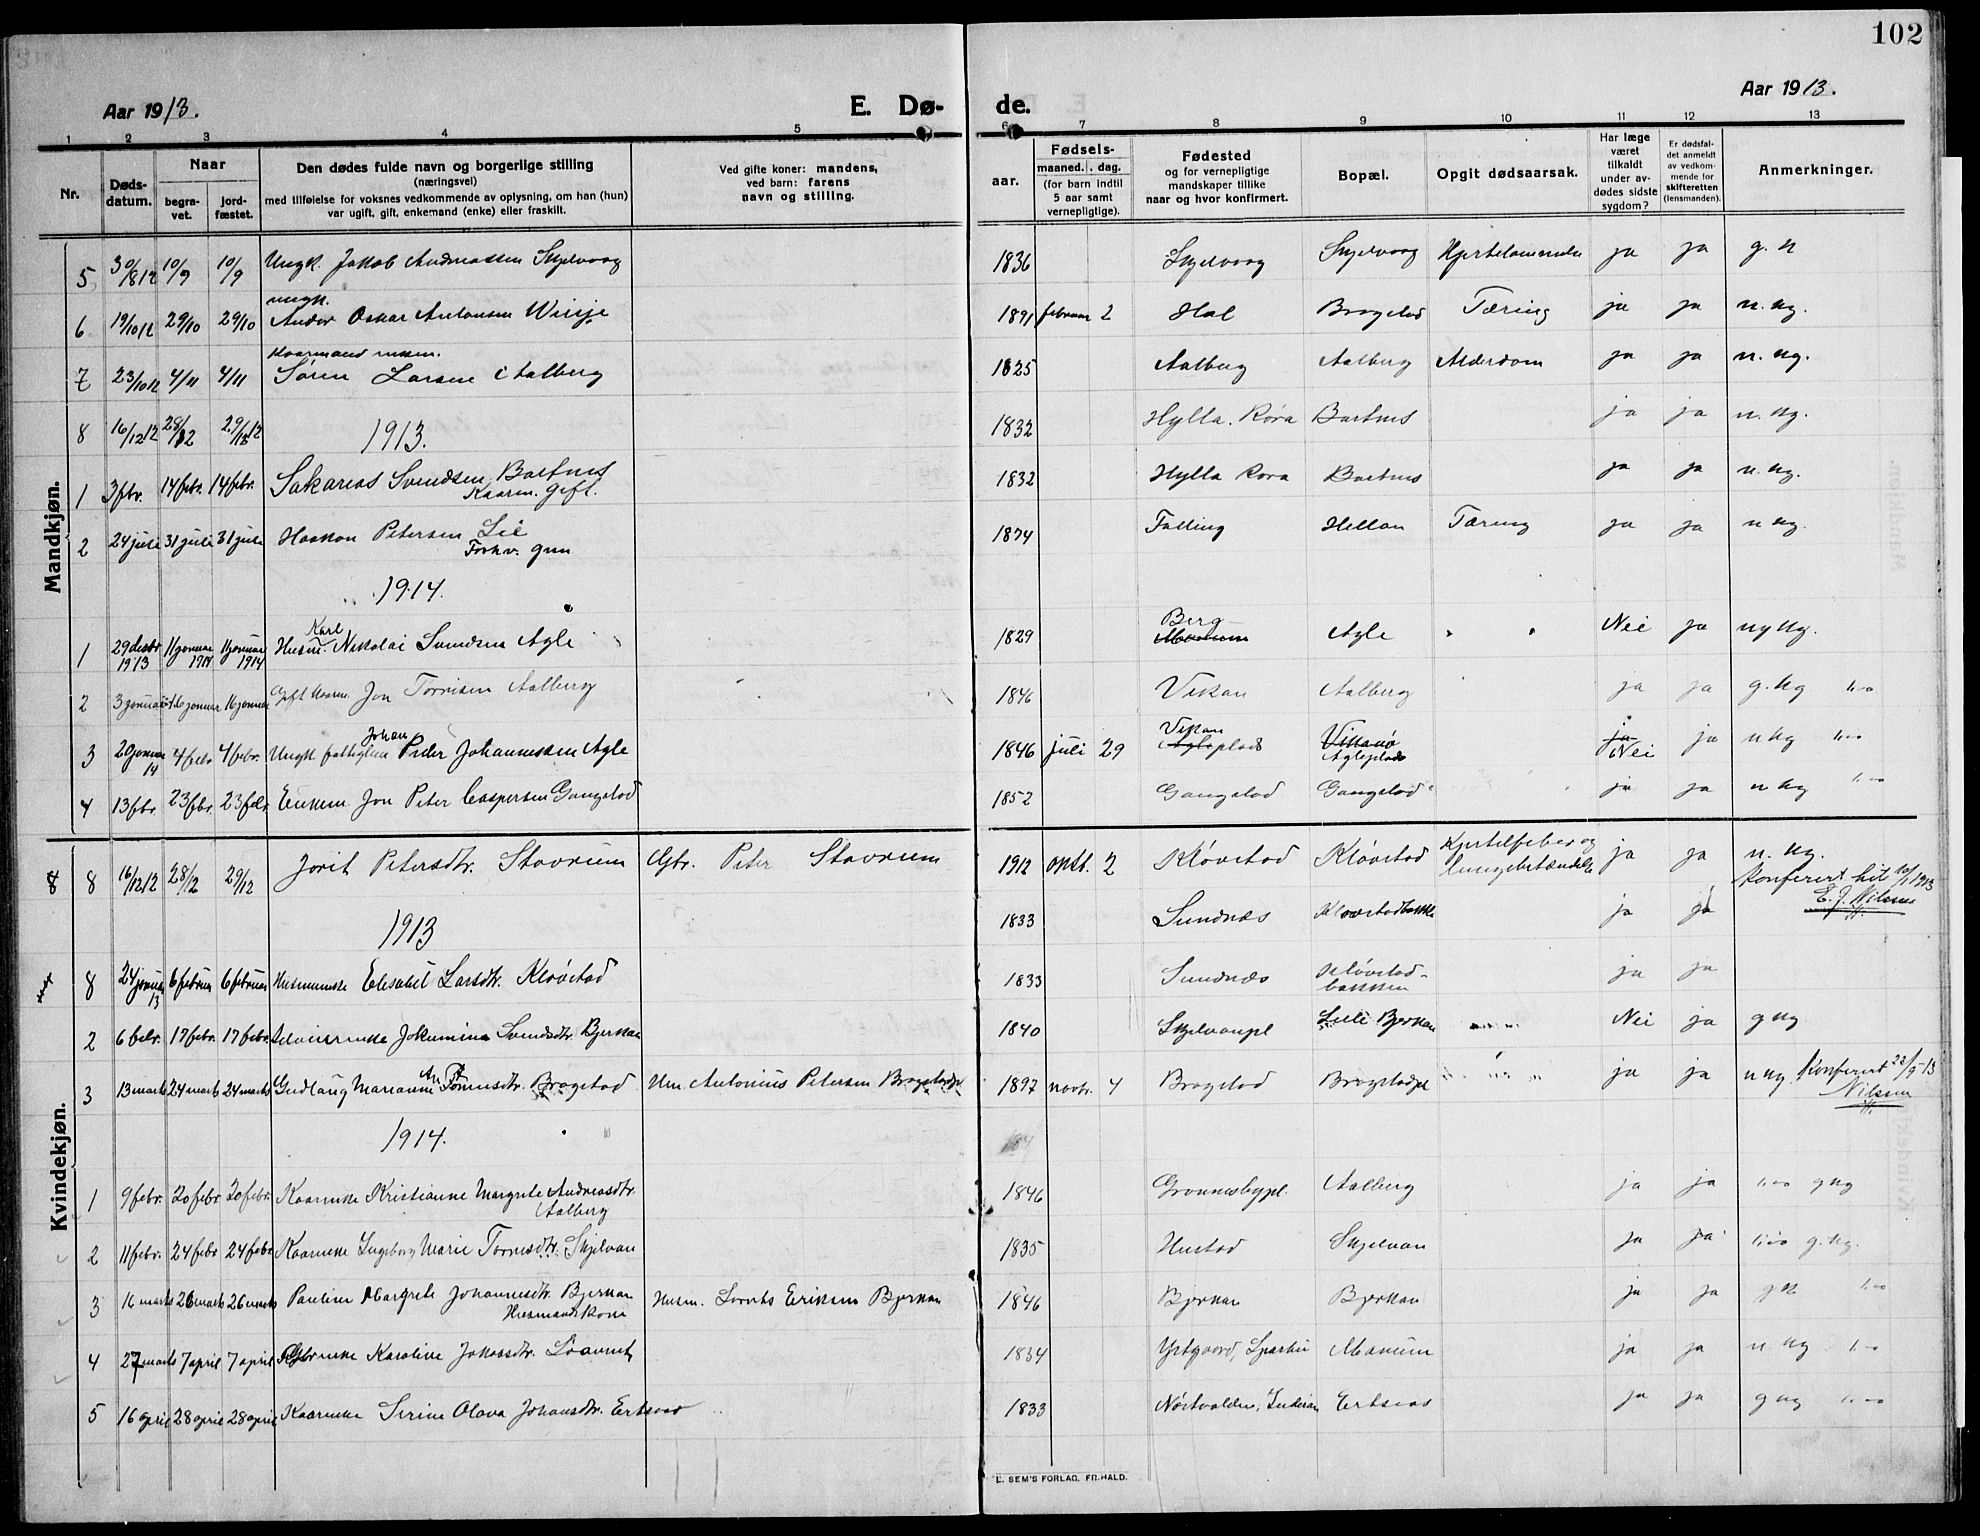 102
Aar 1913.
E. Dø-
de.
Aar 1913.
1 2 3 4 5 6 7 8 9 10 11 12 13
Nr.
Døds-
datum.
Naar
begra-
vet.
jord-
fæstet.
Den dødes fulde navn og borgerlige stilling
(næringsvei)
med tilføielse for voksnes vedkommende av oplysning, om han (hun)
var ugift, gift, enkemand (enke) eller fraskilt.
Ved gifte koner: mandens,
ved barn: farens
navn og stilling.
aar.
Fødsels-
maaned. dag.
(for barn indtil
5 aar samt
vernepligtige).
Fødested
og for vernepligtige
mandskaper tillike
naar og hvor konfirmert.
Bopæl.
Opgit dødsaarsak.
Har læge
været
tilkaldt
under av-
dødes sidste
sygdom?
Er dødsfal-
det anmeldt
av vedkom-
mende for
skifteretten
(lensmanden).
Anmerkninger.
Mandkjøn.
5 30/812 10/9 10/9 Ungk. Jakob Andreassen Skjelvaag 1836 Skjelvaag Skjelvaag Hjertelammelse ja ja g. k
ungk.
6 19/1012 29/10 29/10 Ander Oskar Antonsen Wiisje 1891 februar 2 Hol Bragstad Tæring ja ja n. kg.
Kaarmand enkem.
7 23/1012 4/11 4/11 Søren Larsen i Aalberg 1825 Aalberg Aalberg Alderdom ja ja n. kg.
8 16/1212 28/12 29/12 12 1832 Hylla. Røra Bartnes ja ja n. kg.
1913.
1 3 fbr. 14 febr. 14 febr. Sakarias Svendsen Bartnes 1832 Hylla Røra Bartnes ja ja n. kg.
Kaarm. gift.
2 24 juli 31 juli 31 juli Haakon Petersen Lie 1874 Følling Hellan Tæring ja ja n kg.
Forhv. gm
1914.
Karl
1 29 desbr 1913 11 januar 1914 11 januar 1914 Husm. Nikolai Svendsen Agle 1829 Berg Agle " " Nei ja ny kg.
2 3 januar 16 januar 16 januar Gift Kaarm. Jon Tørrisen Aalberg 1846 Vikan Aalberg ja ja g. kg 1.00
Johan
3 20 januar 14 4 febr 4 febr. Ungk fattiglem Peder Johannessen Agle 1846 juli 29 Vikan Agleplads Vikanø Agleplads ja Nei ja n kg 1.00
4 13 fbr. 23 fbr. 23 febr Enkem Jon Peter Caspersen Gangstad 1852 Gangstad Gangstad ja ja n kg 1.00
Kvindekjøn.
8 8 16/1212 28/12 29/12 Jorit Petersdtr. Stavrum Gbr. Peter Stavrum 1912 oktb. 2 Kløvstad Kløvstad Kjertelfeber og lungebetændelse ja ja n. kg.
Konferert hit 10/1 1913
E. J. Nilssen
1833 Sundnæs Kløvstadbakke ja ja
1913
8 24 januar 13 6 februar 6 februar Husmenke Elisabet Larsdtr. Kløvstad 1833 Sundnæs Kløvstad-
bakken ja ja
2 6 febr. 17 febr. 17 febr. Jokumine Svendsdtr. Bjerkan 1840 Skjelvanpl Lille Bjerkan " " Nei ja g kg
3 13 marts 24 marts 24 marts Gudlaug Marianne Tønnesdtr. Bragstad Hm. Antonius Petersen Bragstadpl 1897 novbr. 4 Bragstad Bragstadpl " " ja ja n kg Konferert 22/9-13
Nilssen
1914.
1 9 febr. 20 febr 20 febr. Kaarenke Kristianne Margrete Andreasdtr. 1846 Grønnesbypl. Aalberg ja ja 1.00 g kg
Aalberg
2 11 febr. 24 febr 24 febr Kaarenke Ingeborg Marie Tørrisdtr. Skjelvan 1835 Hustad Skjelvan ja ja 1.00 g. kg.
3 16 marts 26 marts 26 marts Pauline Margrete Johannesdtr. Bjerkan Husm. Lornts Eriksen Bjerkan 1846 Bjerkan Bjerkan ja ja g k 1.00
Husmandskone
4 27 marts 7 april 7 april Gbrenke Karoline Jakobsdtr. 1834 Ystgaard, Sparbu Mærum ja ja n kg 1.00
5 16 april 28 april 28 april Kaarenke Serine Olava Johansdtr. Ertsaas 1833 Inderøen Ertsaas ja ja g kg 1.00
E. SEM'S FORLAG, FR.HALD.